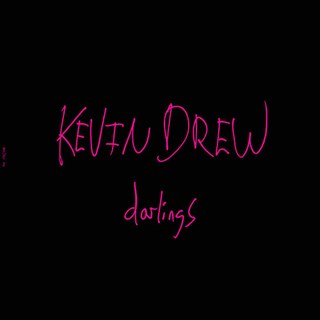 KEVIN DREW
darlings